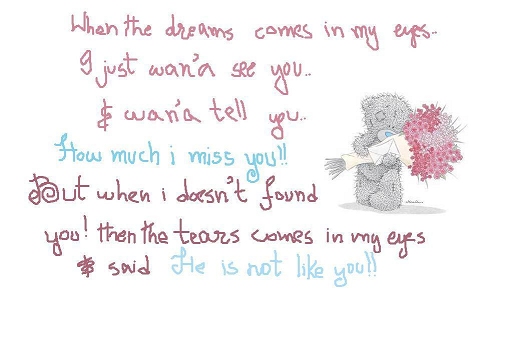 When the dreams comes in my eyes..
I just wan'a see you..
& wan'a tell you..
How much i miss you!!
But when i doesn't found
you! then the tears comes in my eyes
& said He is not like you!!